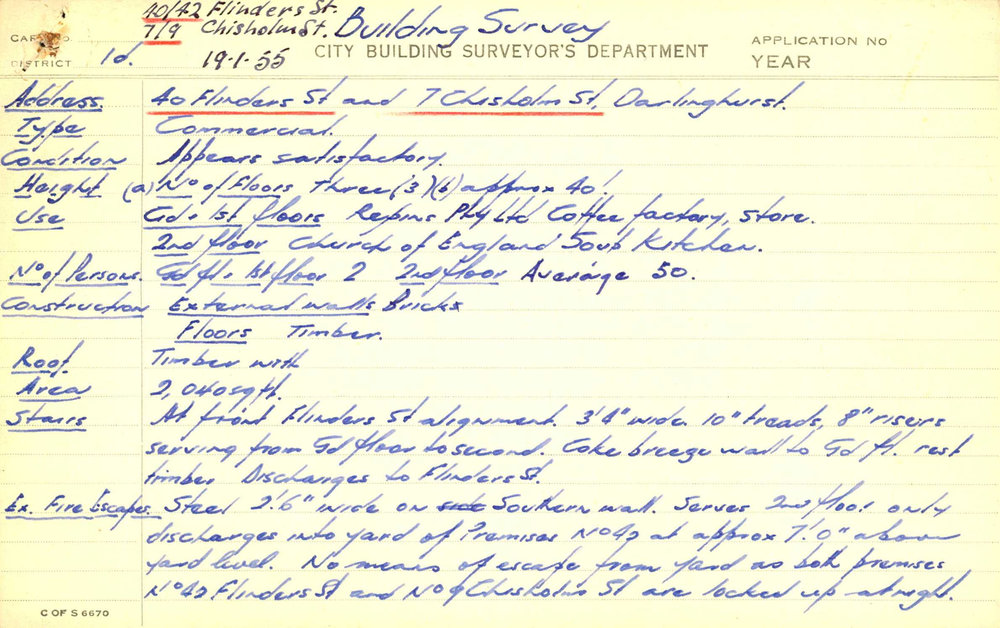 40/42 Flinders St.
7/9 Chisholm St. Building Survey
CARD No
DISTRICT 1d. 19-1-55 CITY BUILDING SURVEYOR'S DEPARTMENT
APPLICATION No
YEAR
Address. 40 Flinders St and 7 Chisholm St, Darlinghurst.
Type Commercial.
Condition Appears satisfactory.
Height (a) No of Floors Three (3) (b) approx 40'.
Use Gd & 1st floors Repins Pty Ltd Coffee factory, store.
2nd floor Church of England Soup Kitchen.
No of Persons. Gd fl & 1st floor 2 2nd floor Average 50.
Construction External walls Bricks
Floors Timber.
Roof Timber with
Area 2,040 sq ft.
Stairs At front Flinders St alignment. 3'4" wide 10" treads, 8" risers
serving from Gd floor to second. Coke breeze wall to Gd fl. rest
timber Discharges to Flinders St.
Ex. Fire Escapes. Steel 2'.6" wide on side Southern wall. Serves 2nd floor only
discharges into yard of Premises No 42 at approx 7'.0" above
yard level. No means of escape from yard as both premises
No 42 Flinders St and No 9 Chisholm St are locked up at night.
C OF S 6670